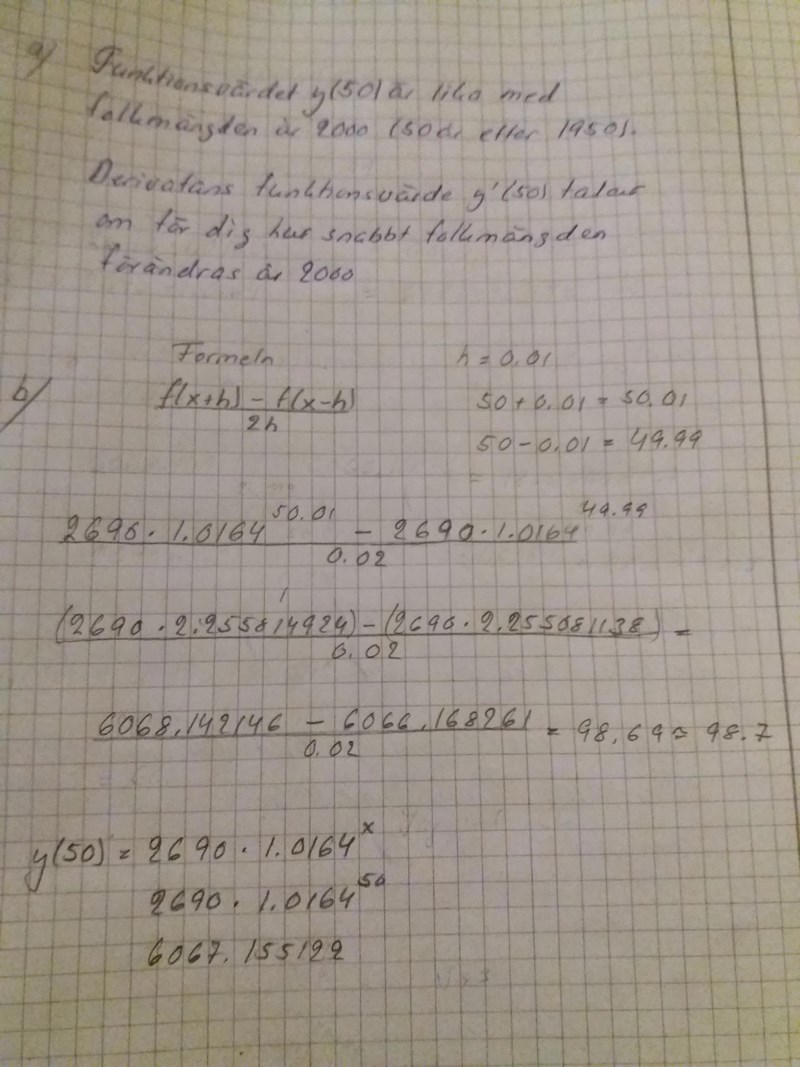 a) Funktionsvärdet y(50) är lika med
folkmängden år 2000 (50 år efter 1950).
Derivatans funktionsvärde y'(50) talar
om för dig hur snabbt folkmängden
förändras år 2000
Formeln h = 0.01
b) f(x+h) - f(x-h) / 2h
50 + 0.01 = 50.01
50 - 0.01 = 49.99
2690 · 1.0164^50.01 - 2690 · 1.0164^49.99 / 0.02
(2690 · 2.255814924) - (2690 · 2.255081138) / 0.02 =
6068,142146 - 6066,168261 / 0.02 = 98,69 ≈ 98.7
y(50) = 2690 · 1.0164^x
2690 · 1.0164^50
6067.155122